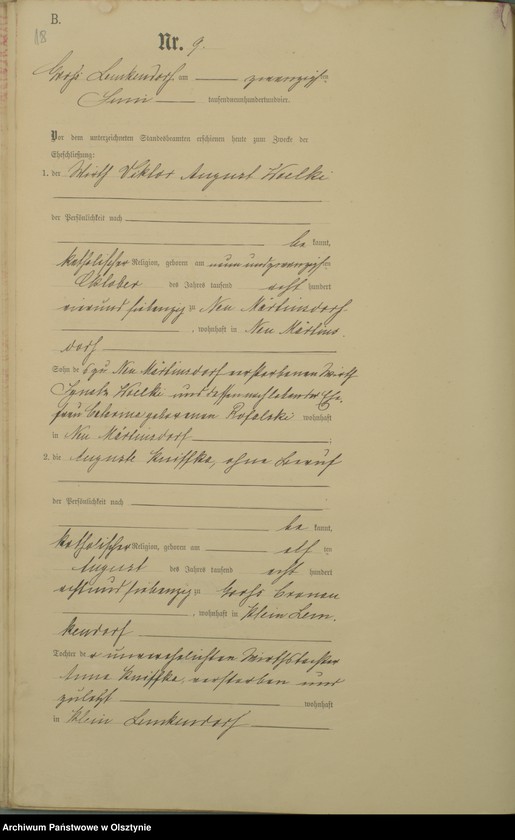 B.
18
Nr. 9.
Groß Lemkendorf am zwanzigsten
Juni tausendneunhundertundvier.
Vor dem unterzeichneten Standesbeamten erschienen heute zum Zwecke der
Eheschließung:
1. der Wirth Viktor August Hoelki
der Persönlichkeit nach
be kannt,
katholischer Religion, geboren am neunundzwanzigsten
Oktober des Jahres tausend acht hundert
vierundsiebenzig zu Neu Märtinsdorf
, wohnhaft in Neu Märtins
dorf
Sohn des zu Neu Märtinsdorf verstorbenen Wirth
Ignatz Hoelki und dessen nachlebender Ehe-
frau geborenen wohnhaft
in Neu Märtinsdorf ;
2. die Auguste Kniffka, ohne Beruf
der Persönlichkeit nach
be kannt,
katholischer Religion, geboren am elf ten
August des Jahres tausend acht hundert
achtundsiebenzig zu Groß
, wohnhaft in Klein Lem-
kendorf
Tochter der unverehelichten Wirthstochter
Anna Kniffka, verstorben und
zuletzt wohnhaft
in Klein Lemkendorf
Archiwum Państwowe w Olsztynie